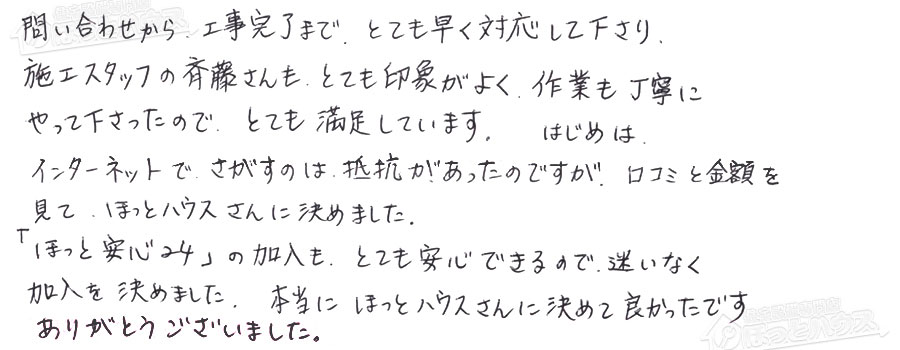 問い合わせから、工事完了まで、とても早く対応して下さり、
施工スタッフの斉藤さんも、とても印象がよく、作業も丁寧に
やって下さったので、とても満足しています。 はじめは、
インターネットで、さがすのは、抵抗があったのですが、口コミと金額を
見て、ほっとハウスさんに決めました。
「ほっと安心24」の加入も、とても安心できるので、迷いなく
加入を決めました。 本当にほっとハウスさんに決めて良かったです
ありがとうございました。
ほっとハウス